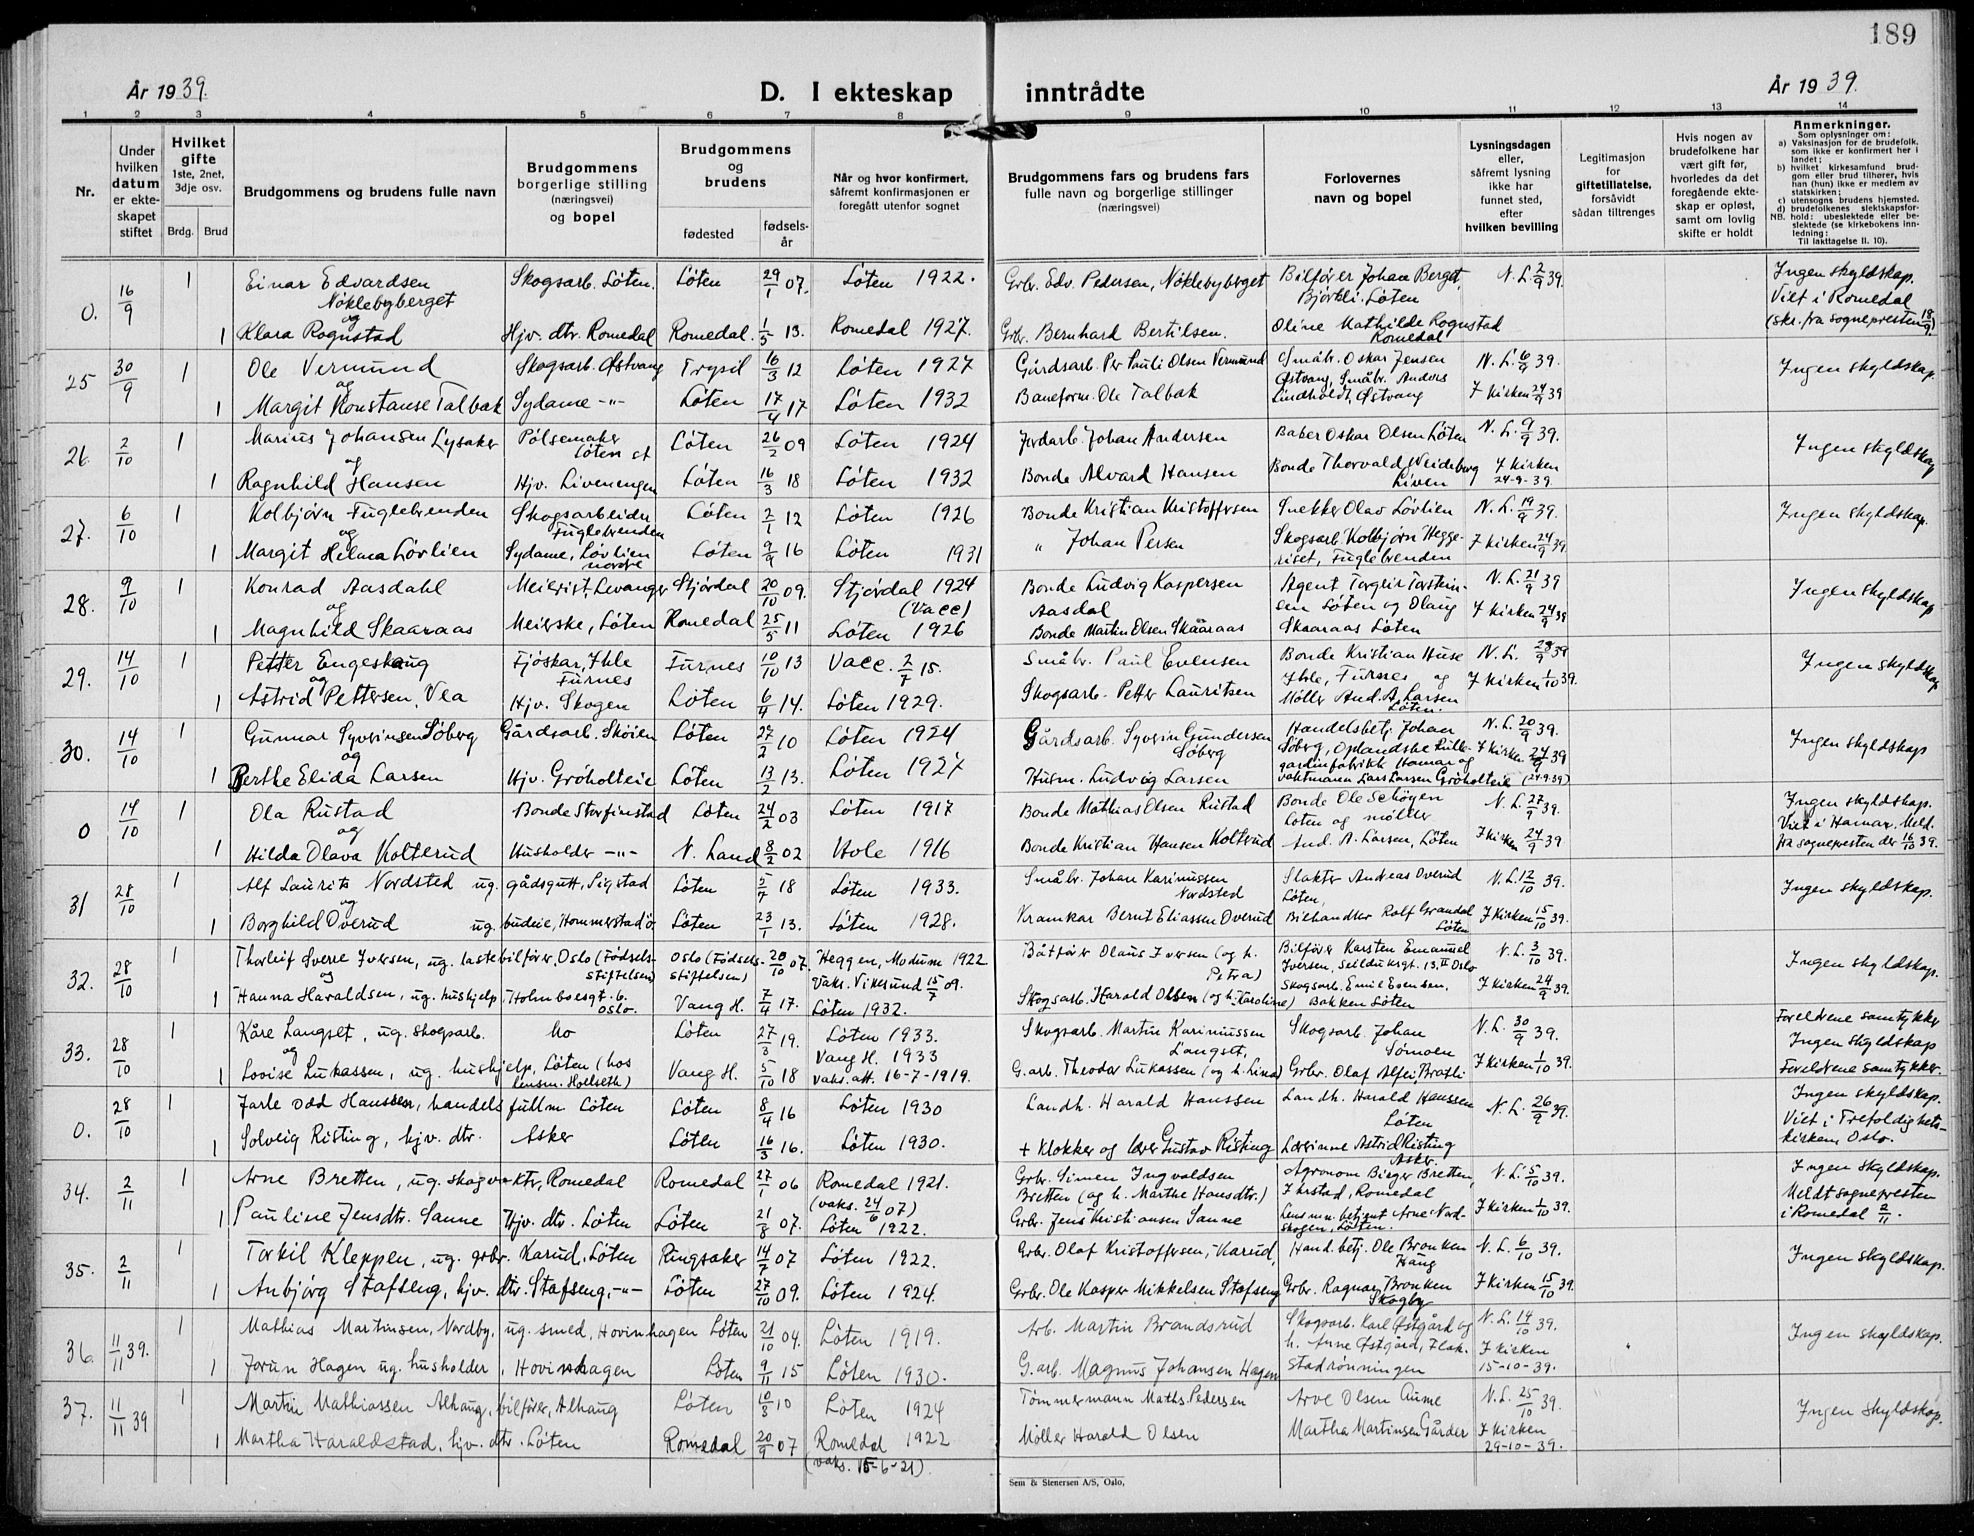 189
År 1939.
D. I ekteskap inntrådte
År 1939.
1 2 3 4 5 6 7 8 9 10 11 12 13 14
Nr.
Under hvilken datum er ekteskapet stiftet
Hvilket gifte
1ste, 2net, 3dje osv.
Brdg. Brud
Brudgommens og brudens fulle navn
Brudgommens borgerlige stilling (næringsvei) og bopel
Brudgommens og brudens
fødested
fødselsår
Når og hvor konfirmert, såfremt konfirmasjonen er foregått utenfor sognet
Brudgommens fars og brudens fars fulle navn og borgerlige stillinger (næringsvei)
Forlovernes navn og bopel
Lysningsdagen eller, såfremt lysning ikke har funnet sted, efter hvilken bevilling
Legitimasjon for giftetillatelse, forsåvidt sådan tiltrenges
Hvis nogen av brudefolkene har vært gift før, hvorledes da det foregående ekteskap er opløst, samt om lovlig skifte er holdt
Anmerkninger.
Som oplysninger om:
a) Vaksinasjon for de brudefolk, som ikke er konfirmert her i landet;
b) hvilket kirkesamfund brudgom eller brud tilhører, hvis han (hun) ikke er medlem av statskirken;
c) utensogns brudens hjemsted.
d) brudefolkenes slektskapsforhold: ubeslektede eller beslektede (se kirkebokens innledning:
NB.
Til Iakttagelse II. 10).
0. 16/9 1 Einar Edvardsen Nøklebyberget Skogsarb. Løten. Løten 29/1 07. Løten 1922. Grbr. Edv. Pedersen, Nøklebyberget Bilfører Johan Berget, Bjørkli Løten N. L. 2/9 39. Ingen skyldskap. Viet i Romedal
og
1 Klara Rognstad Hjv. dtr. Romedal Romedal. 1/5 13. Romedal 1927. Grb. Bernhard Bertilsen. Oline Mathilde Rognstad Romedal (skr. fra sognepresten 18/9)
25 30/9 1 Ole Vermund Skogsarb. Østvang Trysil 16/3 12 Løten 1927 Gårdsarb. Per Pauli Olsen Vermund Småbr. Oskar Jensen Østvang, Småbr. Anders N. L. 6/9 39. Ingen skyldskap.
og
1 Margit Konstanse Talbak Sydame -"- Løten 17/4 17 Løten 1932 Baneform. Ole Talbak Lindholdt, Østvang I kirken 24/9 39
26. 2/10 1 Marius Johansen Lysaker Pølsemaker Løten st Løten 26/2 09 Løten 1924 Jordarb. Johan Andersen Baker Oskar Olsen Løten N. L. 9/9 39. Ingen skyldskap
og
1 Ragnhild Hansen Hjv. Livenengen Løten 16/3 18 Løten 1932 Bonde Alvard Hansen Bonde Thorvald Weideberg Liven I kirken 24-9-39.
27. 6/10 1 Kolbjørn Fuglebrenden Skogsarbeider Fuglebrenden Løten 2/1 12 Løten 1926 Bonde Kristian Kristoffersen Snekker Olav Løvlien N. L. 19/9 39. Ingen skyldskap.
og
1 Margit Helma Løvlien Sydame, Løvlien nordre Løten 9/9 16 Løten 1931 " Johan Persen Skogsarb. Kolbjørn Heggeriset, Fuglebrenden I kirken 24/9 39
28. 9/10 1 Konrad Aasdahl Meierist, Levanger Stjørdal 20/10 09. Stjørdal 1924 (Vacc) Bonde Ludvig Kaspersen Aasdal Agent Torgeir Torsteinsen Løten og Olaug N. L. 21/9 39 Ingen skyldskap
og
1 Magnhild Skaaraas Meierske, Løten Romedal 25/5 11 Løten 1926 Bonde Martin Olsen Skaaraas Skaaraas Løten I kirken 24/9 39
29. 14/10 1 Petter Engeshaug Fjøskar, Ihle Furnes Furnes 10/10 13 Vacc. 2/7 15. Småbr. Paul Evensen Bonde Kristian Huse Ihle, Furnes og N. L. 28/9 39 Ingen skyldskap
og
1 Astrid Pettersen, Vea Hjv. Skogen Løten 6/4 14. Løten 1929. Skogsarb. Petter Lauritsen Møller And. A. Larsen Løten. I kirken 1/10 39.
30. 14/10 1 Gunnar Syversinsen Søberg Gårdsarb. Skøien Løten 27/2 10 Løten 1924 Gårdsarb. Syverin Gundersen Søberg Handelsbetj. Johan Søberg, Oplandske Rullegardinfabrikk Hamar og N. L. 20/9 39. Ingen skyldskap
og
1 Berthe Elida Larsen Hjv. Grøholteie Løten 13/2 13. Løten 1927 Husm. Ludvig Larsen vaktmann Lars Larsen Grøholteie I kirken 24/9 39 (24-9-39)
0 14/10 1 Ola Rustad Bonde Storfinstad Løten 24/2 03 Løten 1917 Bonde Mathias Olsen Rustad Bonde Ole Schøyen Løten og møller N. L. 27/9 39. Ingen skyldskap. Viet i Hamar. Meld.
og
1 Hilda Olava Kolterud Husholder -"- N. Land 8/2 02 Hole 1916 Bonde Kristian Hansen Kolterud And. A. Larsen, Løten I kirken 24/9 39 fra sognepresten der 16/10 39.
31 28/10 1 Alf Laurits Nordsted ug. gådsgutt, Sigstad Løten 5/7 18 Løten 1933. Småbr. Johan Karinussen Nordsted Slakter Andreas Overud Løten, N. L. 12/10 39. Ingen skyldskap.
og
1 Borghild Overud ug. budeie, Hommerstad ø. Løten 23/1 13. Løten 1928. Kramkar Bernt Eliassen Overud Bilhandler Rolf Grandal Løten I kirken 15/10 39.
32. 28/10 1 Thorleif Sverre Iversen, ug. lastebilfører, Oslo (Fødselsstiftelsen) Oslo (Fødselsstiftelsen) 20/10 07. Heggen, Modum 1922. Vaks. Vikesund 15/7 09. Båtfører Olaus Iversen (og h. Petra) Bilfører Karsten Emanuel Iversen, Seilduksgt. 13. II Oslo N. L. 3/10 39. Ingen skyldskap.
og
1 Hanna Haraldsen, ug. hushjelp, Holmboesgt. 6. Oslo. Vang H. 7/4 17. Løten 1932. Skogsarb. Harald Olsen (og h. Karoline) Skogsarb. Emil Evensen, Bakken Løten I kirken 24/9 39.
33. 28/10 1 Kåre Langset, ug. skogsarb. ho Løten 27/3 19. Løten 1933. Skogsarb. Martin Karinussen Langset, Skogsarb. Johan Sømoen N. L. 30/9 39. Foreldrene samtykker Ingen skyldskap
og
1 Lovise Lukassen, ug. hushjelp, Løten (hos lensm. Hoelseth) Vang H. 5/10 18 Vang H. 1933 vaks. att. 16-7-1919. G. arb. Theodor Lukassen (og h. Lina) Grbr. Olaf Alfei, Bratli I kirken 1/10 39. Foreldrene samtykker.
0. 28/10 1 Jarle Odd Hanssen, handelsfullm Løten Løten 8/4 16 Løten 1930 Landh. Harald Hanssen Landh. Harald Hanssen Løten N. L. 26/9 39. Ingen skyldskap. Viet i Trefoldighetskirken, Oslo.
1 Solveig Risting, hjv. dtr. Asker Løten 16/3 16. Løten 1930. + Klokker og lærer Gustav Risting Lærerinne Astrid Risting Asker.
34. 2/11 1 Arne Bretten, ug. skogvokter, Romedal Romedal 27/1 06 Romedal 1921. (vaks. 24/6 07) Grbr. Simen Ingvaldsen Bretten (og h. Marthe Hansdtr.) Agronom Birger Bretten, Ihrstad, Romedal N. L. 5/10 39. Ingen skyldskap.
1 Pauline Jensdtr. Sanne Hjv. dtr. Løten Løten 21/8 07. Løten 1922. Grbr. Jens Kristiansen Sanne Lensm. betjent Arne Nordskogen, Løten. I kirken 1/10 39. Meldt sognepresten i Romedal 2/11.
35. 2/11 1 Torkil Kleppen, ug. grbr. Karud, Løten Ringsaker 14/7 07 Løten 1922. Grbr. Olaf Kristoffersen, Karud, Hand. betj. Ole Bronken Vang N. L. 6/10 39. Ingen skyldskap.
1 Anbjørg Stafseng, hjv. dtr. Stafseng, -"- Løten 27/10 09. Løten 1924. Grbr. Ole Kasper Mikkelsen Stafseng Grbr. Ragnar Bronken Skogby I kirken 15/10 39.
36. 11/11 39. 1 Mathias Martinsen, Nordby, ug. smed, Hovinhagen Løten 21/10 04. Løten 1919. Arb. Martin Brandsrud Skogsarb. Karl Østgård og h. Anne Østgård, N. L. 14/10 39. Ingen skyldskap.
1 Jorun Hagen ug. husholder, Hovinhagen Løten 9/11 15 Løten 1930. G. arb. Magnus Johansen Hagen stadrønningen I kirken 15-10-39.
37. 11/11 39 1 Martin Mathiassen Alhaug, bilfører, Alhaug Løten 10/3 10 Løten 1924 Tømmermann Maths. Pedersen Arve Olsen Aume N. L. 25/10 39. Ingen skyldskap.
1 Martha Haraldstad, hjv. dtr. Løten Romedal 20/9 07 Romedal 1922 (vaks. 15-6-21). Møller Harald Olsen Martha Martinsen Gårder I kirken 29-10-39.
Sem & Stenersen A/S, Oslo,